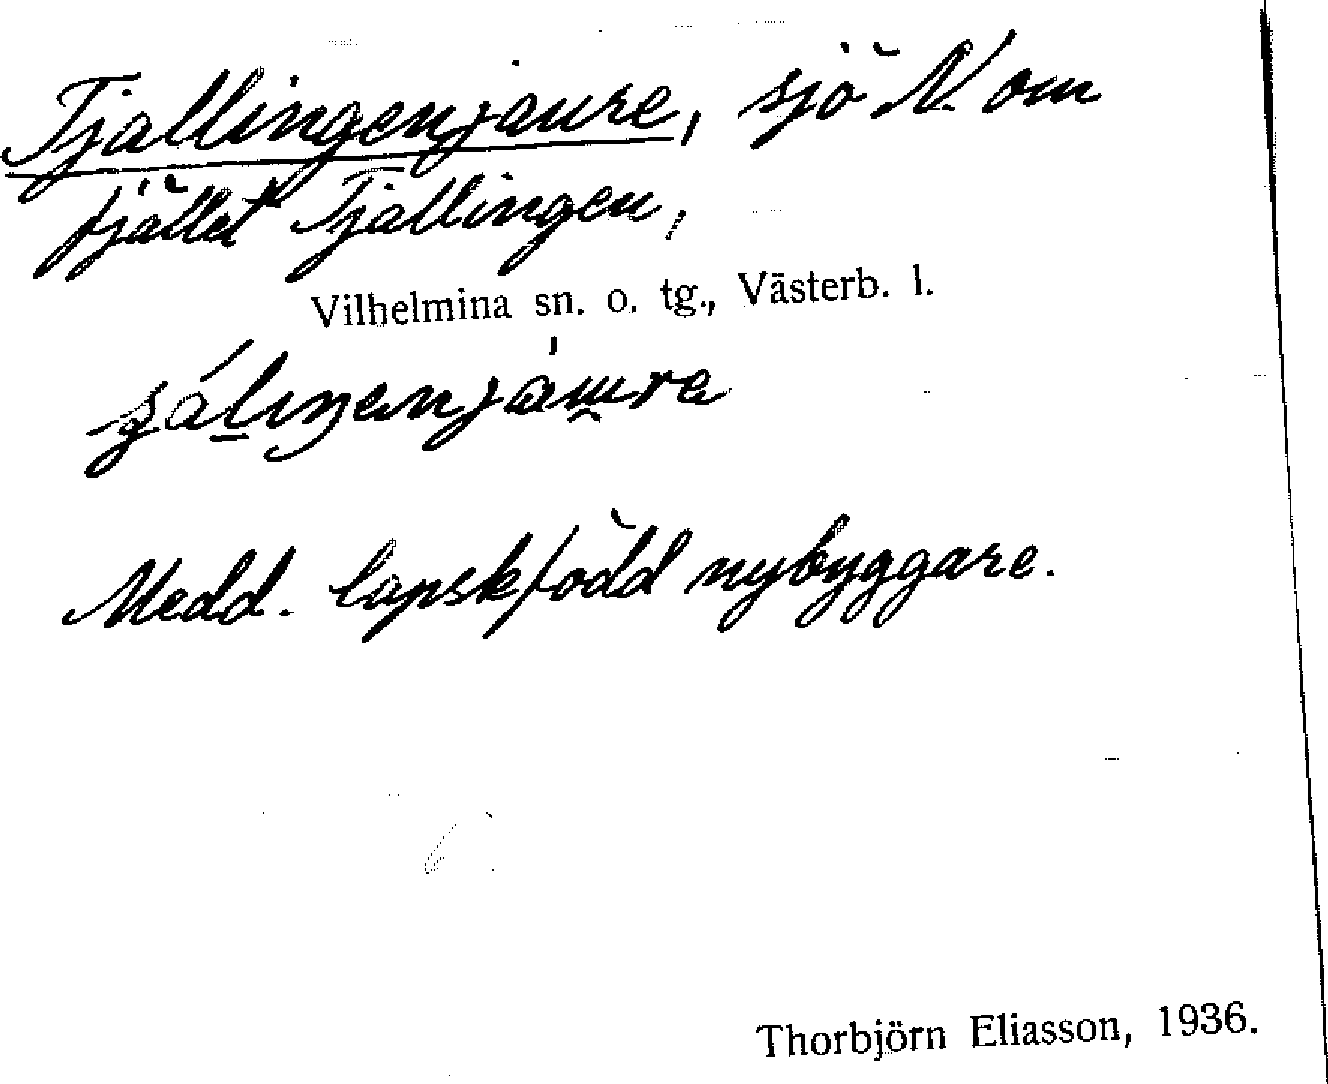 Tjallingenjaure, sjö N om
fjället Tjallingen,
Vilhelmina sn. o. tg., Västerb. l.
Medd. lapskfödd nybyggare.
Thorbjörn Eliasson, 1936.